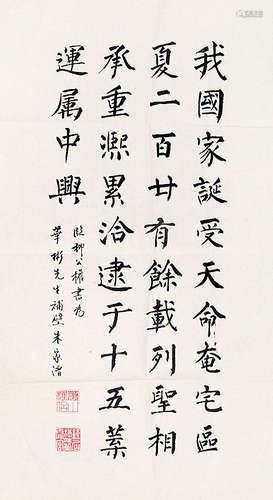 我國家誕受天命奄宅區
夏二百廿有餘載列聖相
承重熙累洽逮于十五葉
運属中興
臨柳公權書為
華彬先生補壁朱家溍